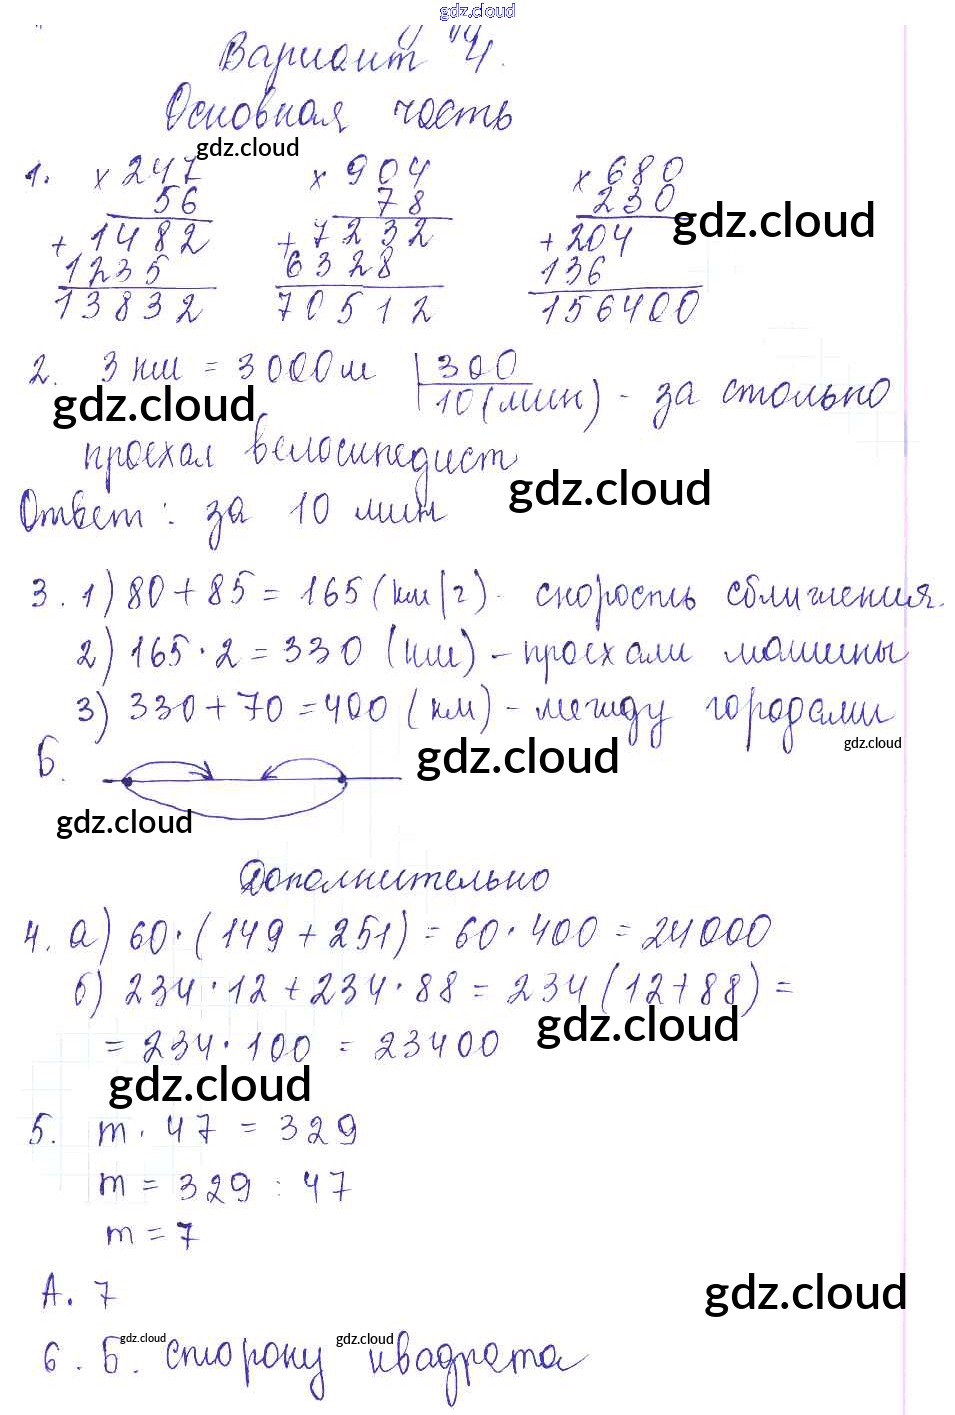 gdz.cloud
Вариант 4.
Основная часть
gdz.cloud
1. × 247 × 904 × 680
56 78 230
gdz.cloud
+ 1482 + 7232 + 204
1235 6328 136
13832 70512 156400
2. 3 км = 3000 м | 300
gdz.cloud
10 (мин) - за столько
проехал велосипедист
gdz.cloud
Ответ: за 10 мин
3. 1) 80 + 85 = 165 (км/ч) - скорость сближения.
2) 165 · 2 = 330 (км) - проехали машины
3) 330 + 70 = 400 (км) - между городами
gdz.cloud
Б.
gdz.cloud
gdz.cloud
Дополнительно
4. а) 60 · (149 + 251) = 60 · 400 = 24000
б) 234 · 12 + 234 · 88 = 234 (12 + 88) =
gdz.cloud
= 234 · 100 = 23400
gdz.cloud
5. m · 47 = 329
m = 329 : 47
m = 7
А. 7
gdz.cloud
gdz.cloud gdz.cloud
6. Б. сторону квадрата